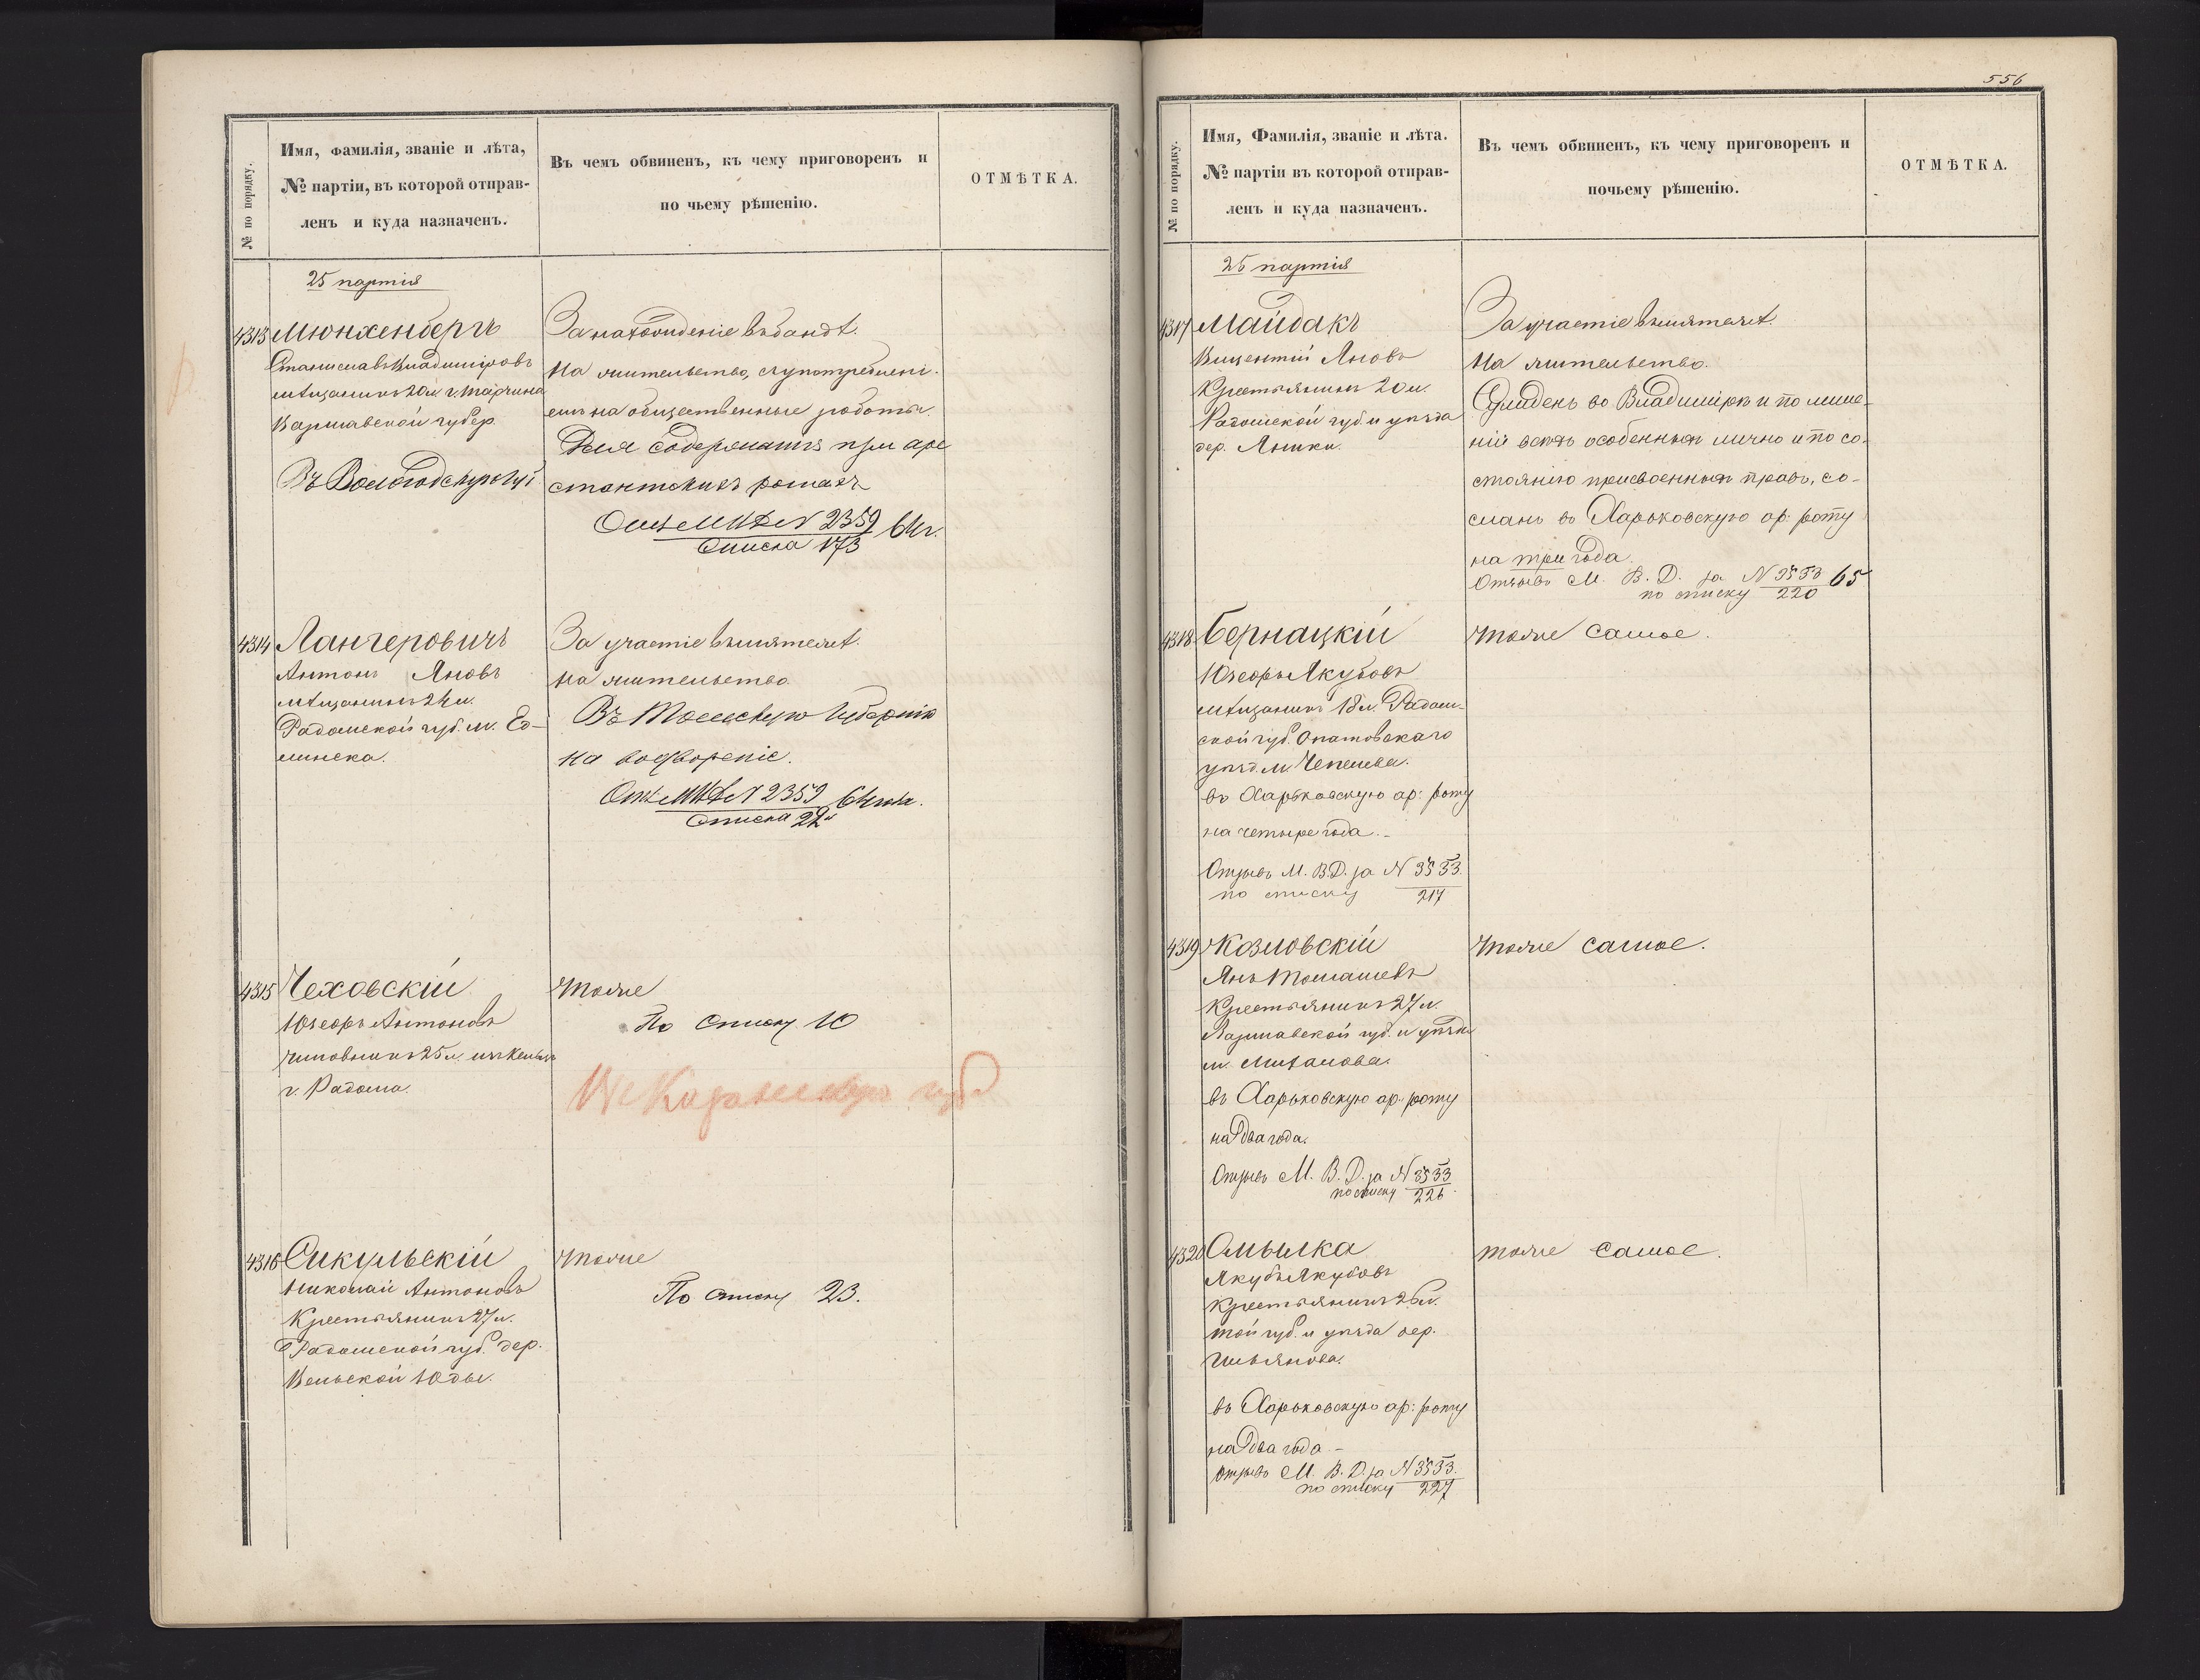 556
№ по порядку.
Имя, Фамилія, званіе и лѣта,
№ партіи, въ которой отправ-
ленъ и куда назначенъ.
Въ чемъ обвиненъ, къ чему приговоренъ и
по чьему рѣшенію.
ОТМѢТКА.
25 партія
4313 Мюнхенбергъ
Станиславъ Владиміровъ
мѣщанинъ 20 л. г.
Варшавской губер.
Въ Вологодскую губ
За нахожденіе въ бандѣ.
На жительство, съ употреблені-
емъ на общественныя работы.
содержаніе при аре
стантскихъ ротахъ
М В Д N 2359
списка 173
4314 Лангеровичъ
Антонъ Яновъ
мѣщанинъ
Радомской губ. м.
За участіе въ мятежѣ.
на жительство
Въ Томскую Губернію
на водвореніе.
М В Д N 2359
списка
4315 Чеховскій
Юзефъ Антоновъ
чиновникъ 25 л.
г. Радома.
тоже
По списку 10
Въ Казанскую губ
4316 Сикульскій
Николай Антоновъ
Крестьянинъ 27 л.
Радомской губ. дер.
Вельской
тоже
По списку 23.
№ по порядку.
Имя, Фамилія, званіе и лѣта.
№ партіи въ которой отправ-
ленъ и куда назначенъ.
Въ чемъ обвиненъ, къ чему приговоренъ и
почьему рѣшенію.
ОТМѢТКА.
25 партія
4317 Майдакъ
Вицентій Яновъ
Крестьянинъ 20 л.
Радомской губ. и уѣзда
дер.
За участіе въ мятежѣ.
На жительство.
Сужденъ во Владимірѣ и по лише-
ніи всѣхъ особенныхъ лично и по со-
стоянію присвоенныхъ правъ, со-
сланъ въ Харьковскую ар: роту
на три года.
Отзывъ М. В. Д. за N 3553 65
по списку 220
4318 Бернацкій
Юзефъ Якубовъ
мѣщанинъ 18 л. Радом-
ской губ. Опатовскаго
уѣзд. м.
въ Харьковскую ар: роту
на четыре года.-
Отзывъ М. В. Д. за N 3553.
по списку 217
тоже самое.
4319 Козловскій
Янъ Томашевъ
Крестьянинъ 27 л.
Варшавской губ. и уѣзда
въ Харьковскую ар: роту
на два года.
Отзывъ М. В. Д. за N 3553
по списку 226.
тоже самое.
4320 Смылка
Якубъ Якубовъ
Крестьянинъ 26 л.
той губ. и уѣзда дер.
въ Харьковскую ар: роту
на два года -
Отзывъ М. В. Д. за N 3553.
по списку 227
тоже самое.